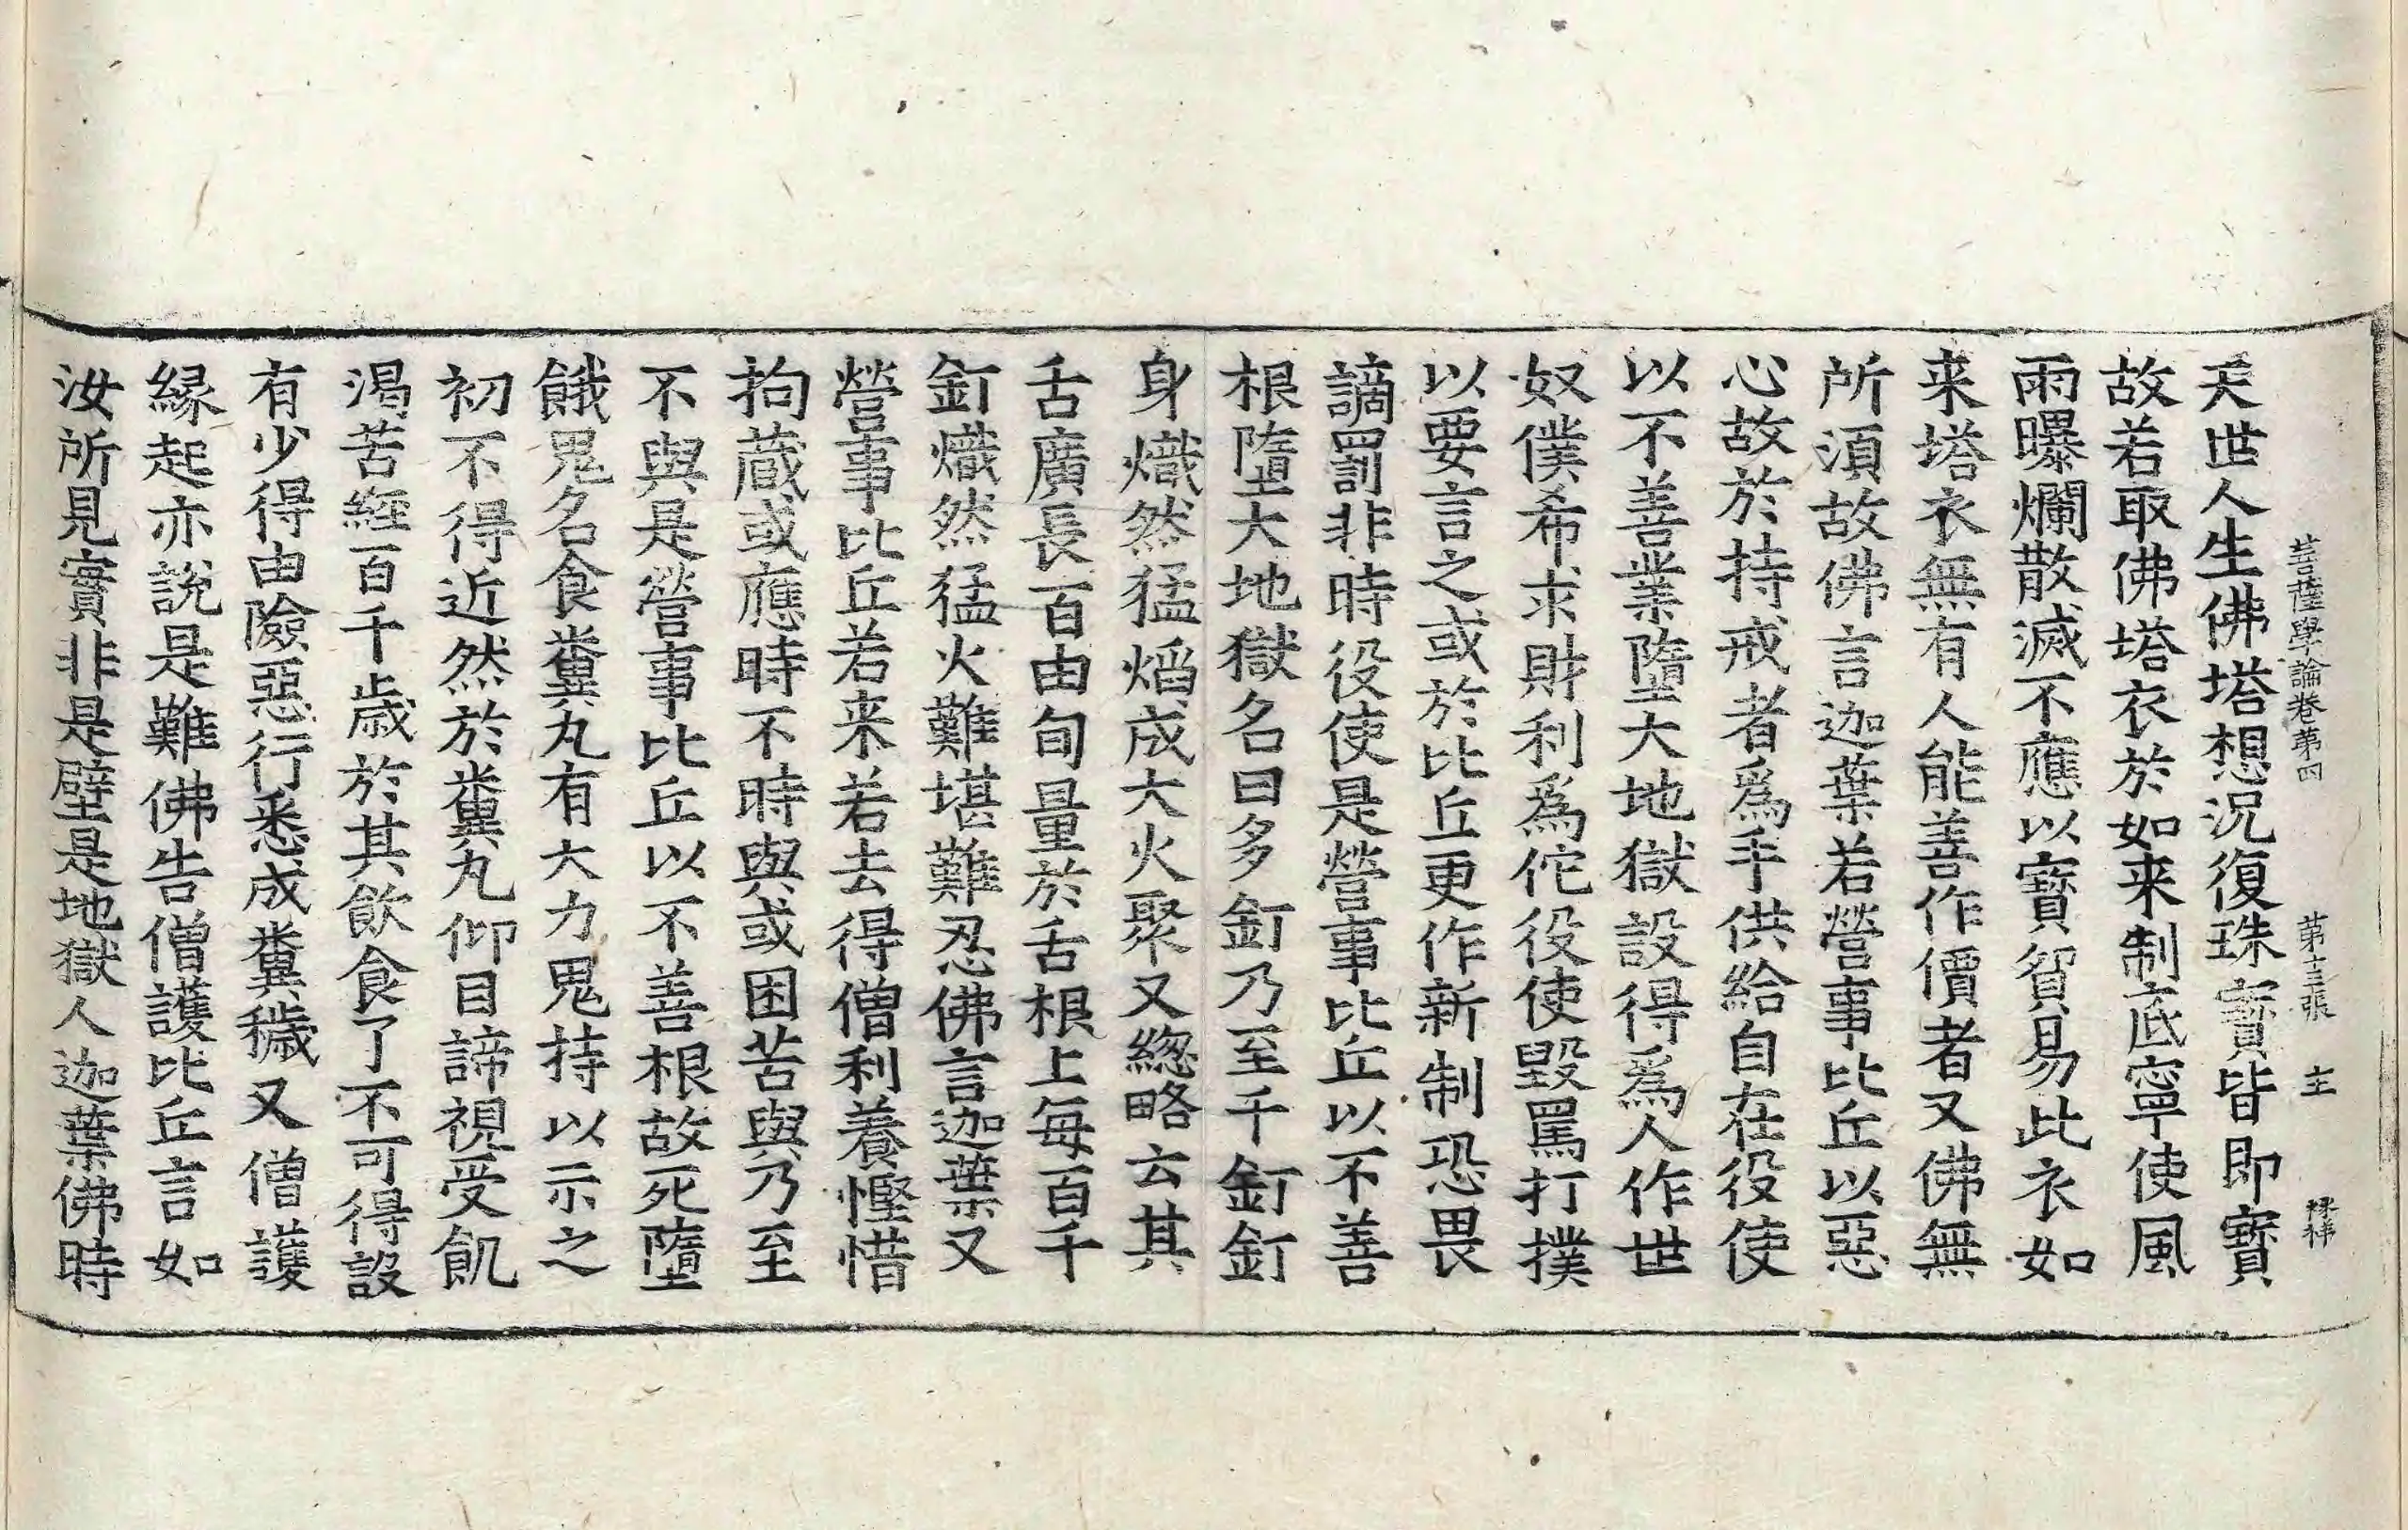 菩薩學論卷第四　第十三張　主
天世人生佛塔想況復珠寶皆即寶
故若取佛塔衣於如来制底寧使風
雨曝爛散滅不應以寶貿易此衣如
来塔衣無有人能善作價者又佛無
所湏故佛言迦葉若營事比丘以惡
心故於持戒者爲手供給自在役使
以不善業墮大地獄設得爲人作世
奴僕希求財利爲佗役使毀罵打撲
以要言之或於比丘更作新制恐畏
謫罰非時役使是營事比丘以不善
根墮大地獄名曰多釘乃至千釘釘
身熾然猛熖成大火聚又緫略云其
舌廣長百由旬量於舌根上每百千
釘熾然猛火難堪難忍佛言迦葉又
營事比丘若来若去得僧利養慳惜
拘蔵或應時不時與或困苦與乃至
不與是營事比丘以不善根故死墮
餓鬼名食糞丸有大力鬼持以示之
初不得近然於糞丸仰目諦視受飢
渴苦經百千歳於其飲食了不可得設
有少得由險惡行悉成糞穢又僧護
縁起亦說是難佛告僧護比丘言如
汝所見實非是壁是地獄人迦葉佛時